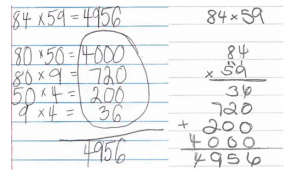 84 × 59 = 4956
80 × 50 = 4000
80 × 9 = 720
50 × 4 = 200
9 × 4 = 36
4956
84 × 59
84
× 59
36
720
+ 200
4000
4956